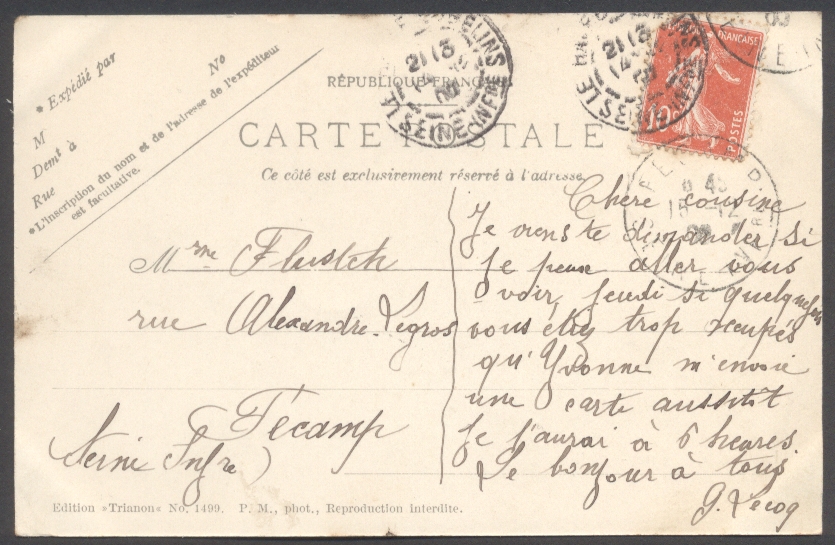 * Expédié par
No
M
Demt à
Rue
*L'inscription du nom et de l'adresse de l'expéditeur
est facultative.
RÉPUBLIQUE FRANÇAISE
CARTE POSTALE
Ce côté est exclusivement réservé à l'adresse.
FRANÇAISE
10
POSTES
Mme Flustch
rue Alexandre Legros
Fécamp
(Seine Infre)
Chère cousine
Je viens te demander si
je peux aller vous
voir, jeudi si quelquefois
vous étiez trop occupés
qu'Yvonne m'envoie
une carte aussitôt
Je l'aurai à 6 heures.
Le bonjour à tous
G. Lecoq
Edition »Trianon« No. 1499. P. M., phot., Reproduction Interdite.